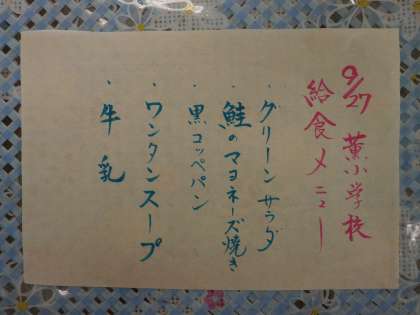 9/27 薫小学校
給食メニュー
・グリーンサラダ
・鮭のマヨネーズ焼き
・黒コッペパン
・ワンタンスープ
・牛乳